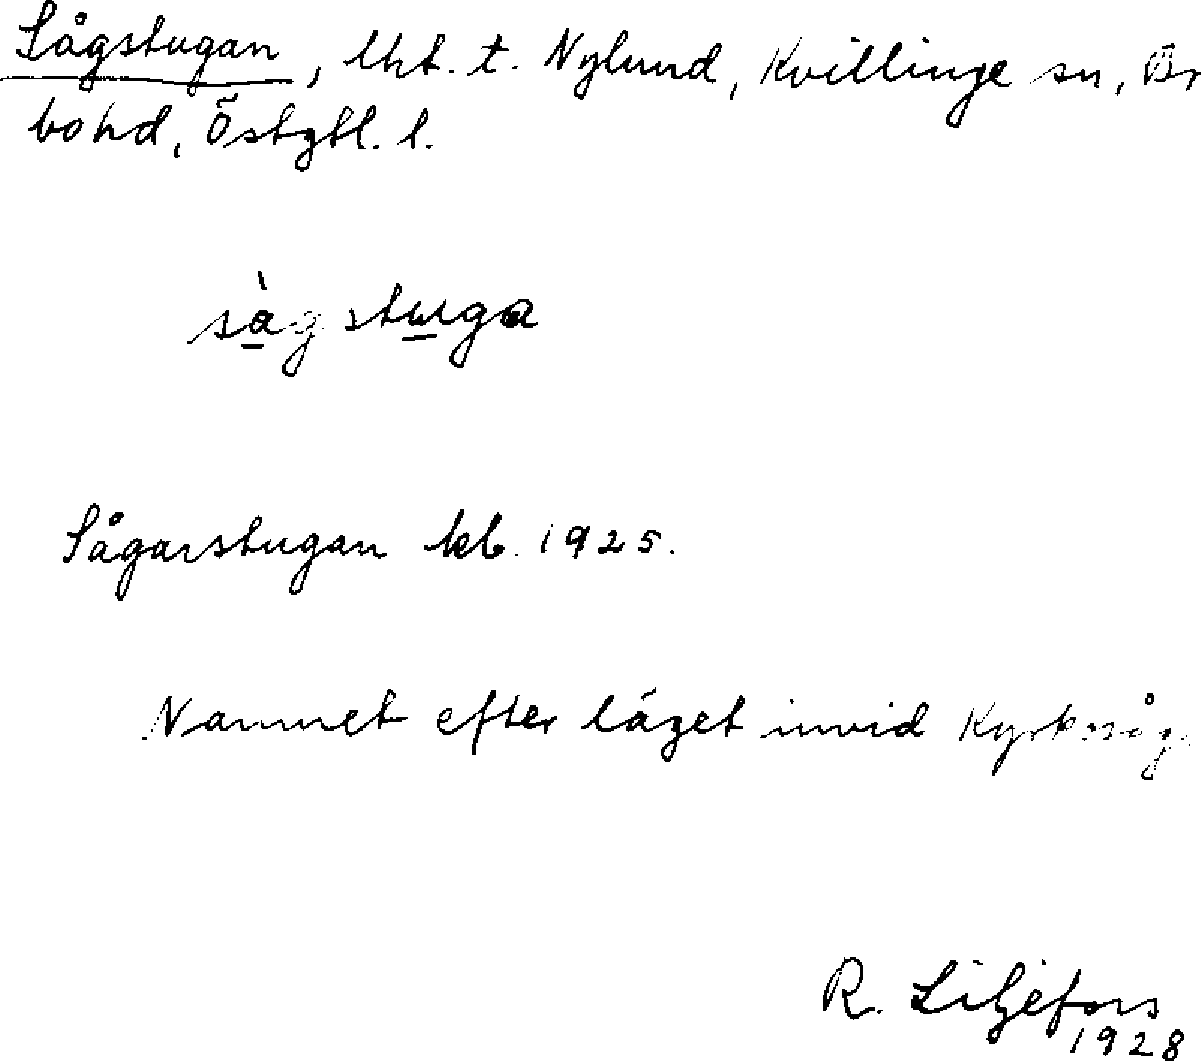 Sågstugan, lht. t. Nylund, Kvillinge sn, Br
bohd, Östgtl. l.
sàgstuga
Sågarstugan kb. 1925.
Namnet efter läget invid Kyrksåg
R. Liljefors
1928